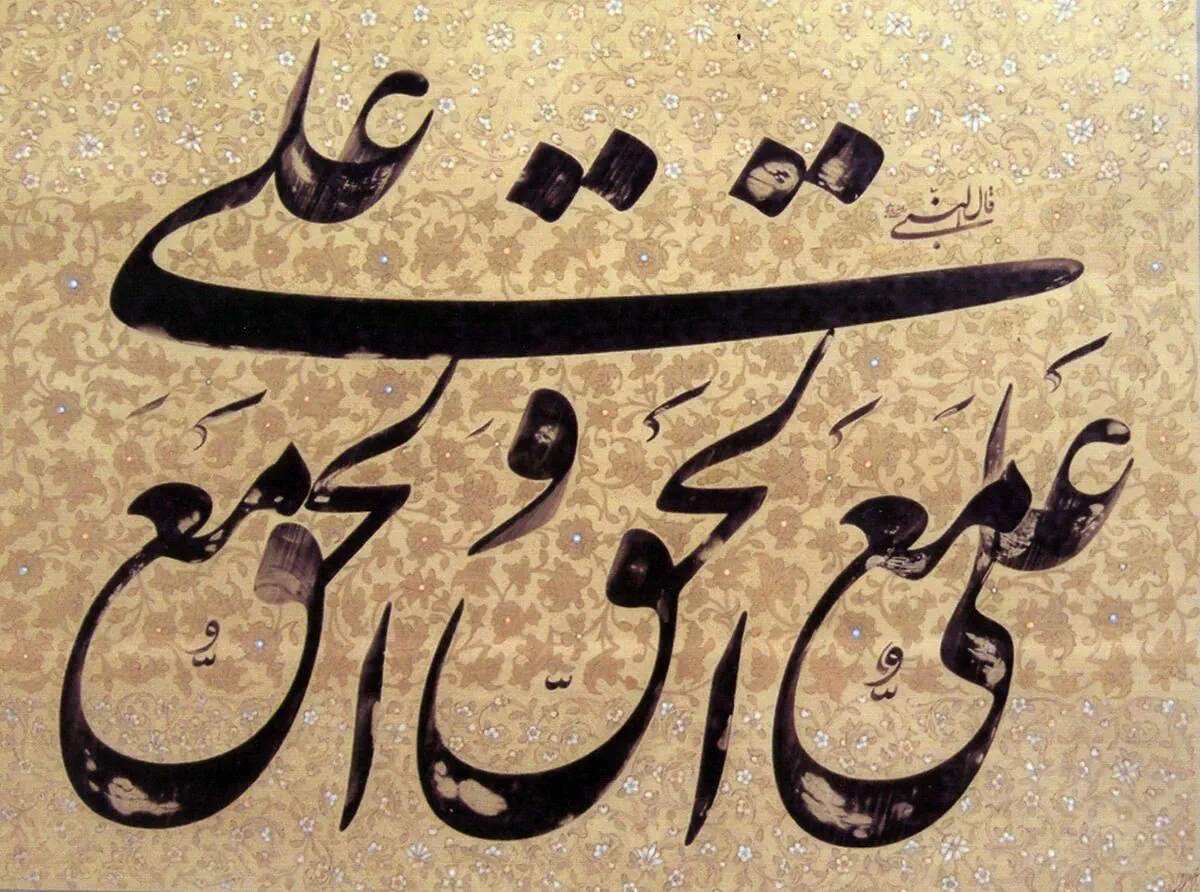 قال النبی
علی مع الحق و الحق مع
علی